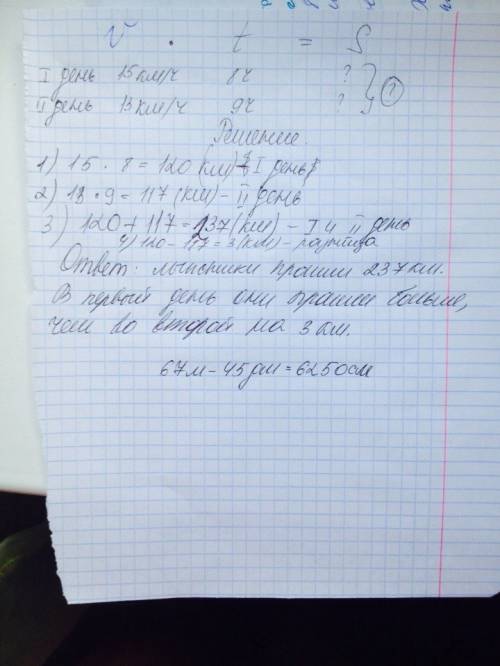 V · t = S
I день 15 км/ч 8ч ?
II день 13 км/ч 9ч ? ?
Решение.
1) 15 · 8 = 120 (км) - I день
2) 13 · 9 = 117 (км) - II день
3) 120 + 117 = 237 (км) - I и II день
4) 120 - 117 = 3 (км) - разница
Ответ: лыжники прошли 237 км.
В первый день они прошли больше,
чем во второй на 3 км.
67м - 45дм = 6250см